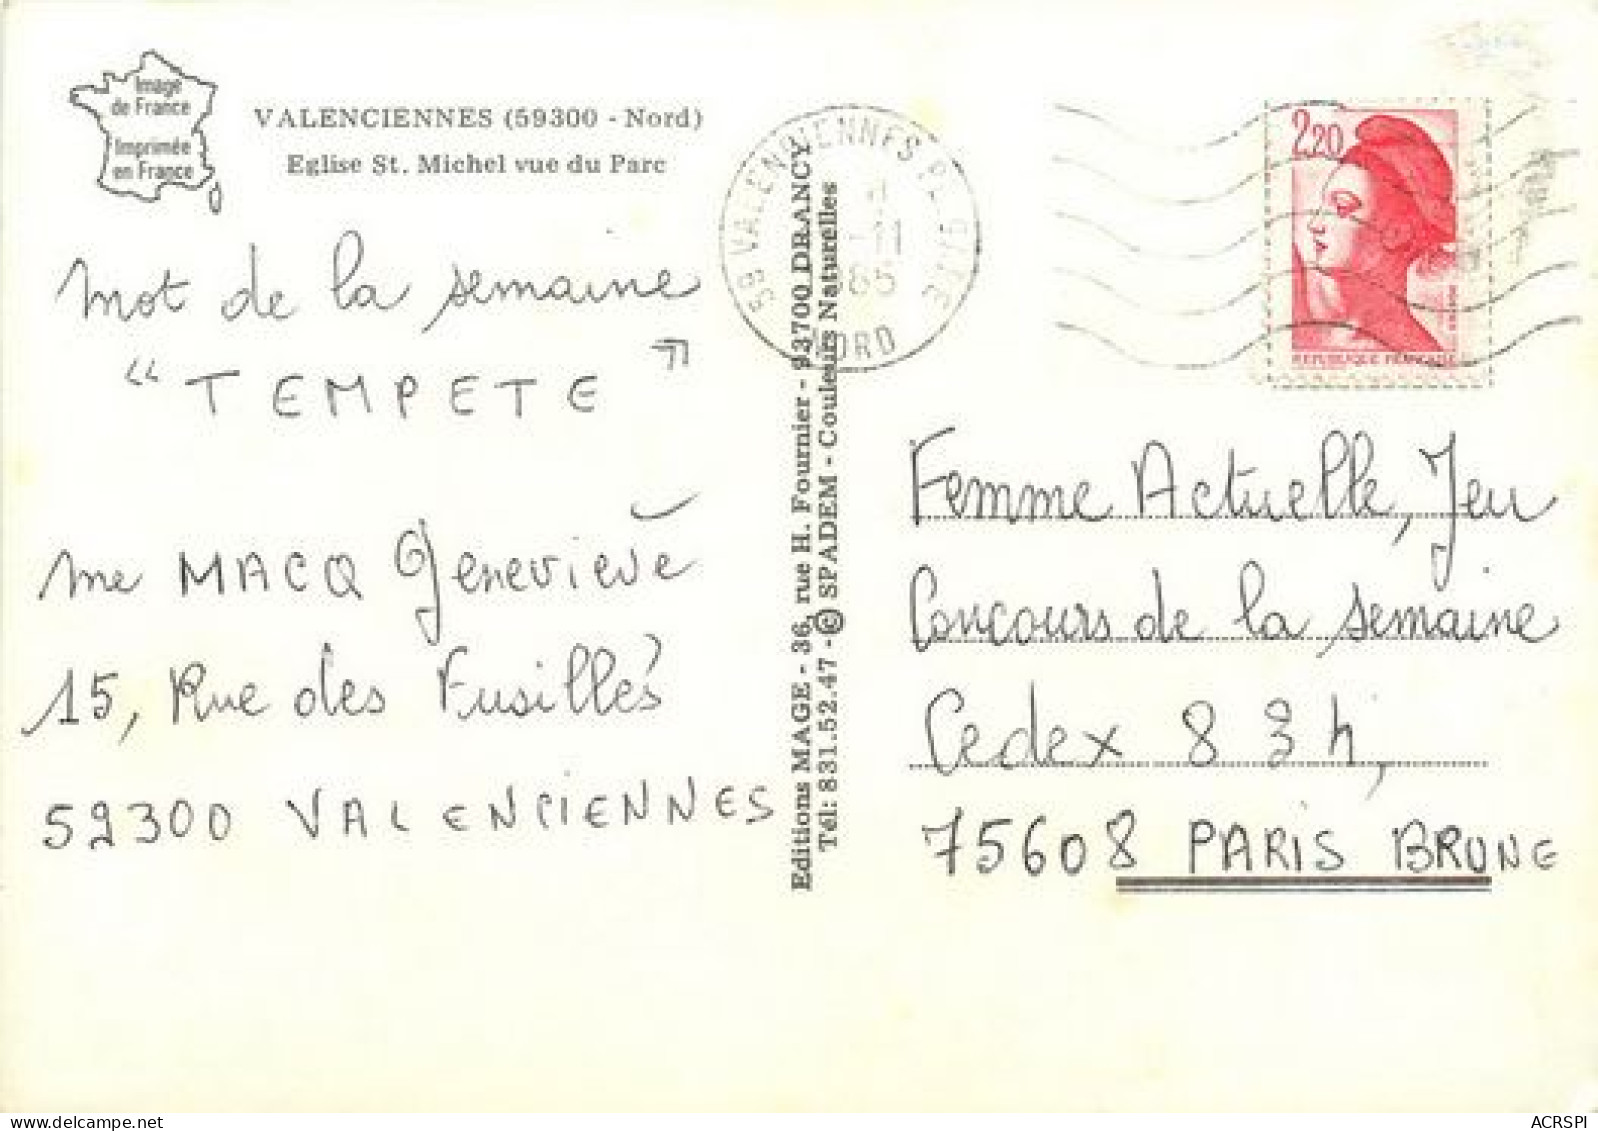 Image
de France
Imprimée
en France
VALENCIENNES (59300 - Nord)
Eglise St. Michel vue du Parc
mot de la semaine
“ TEMPETE ”
me MACQ Geneviève
15, Rue des Fusillés
59300 VALENCIENNES
Editions MAGE - 36, rue H. Fournier - 93700 DRANCY
Tél: 831.52.47 - © SPADEM - Couleurs Naturelles
NORD
2,20
REPUBLIQUE FRANÇAISE
Femme Actuelle, Jeu
Concours de la semaine
Cedex 8 3h,
75608 PARIS BRUNE
ACRSPI